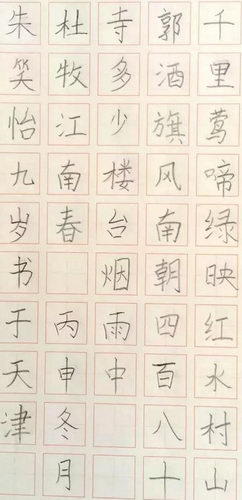 千里莺啼绿映红水村山
郭酒旗风南朝四百八十
寺多少楼台烟雨中
杜牧江南春 丙申冬月
朱笑怡九岁书于天津